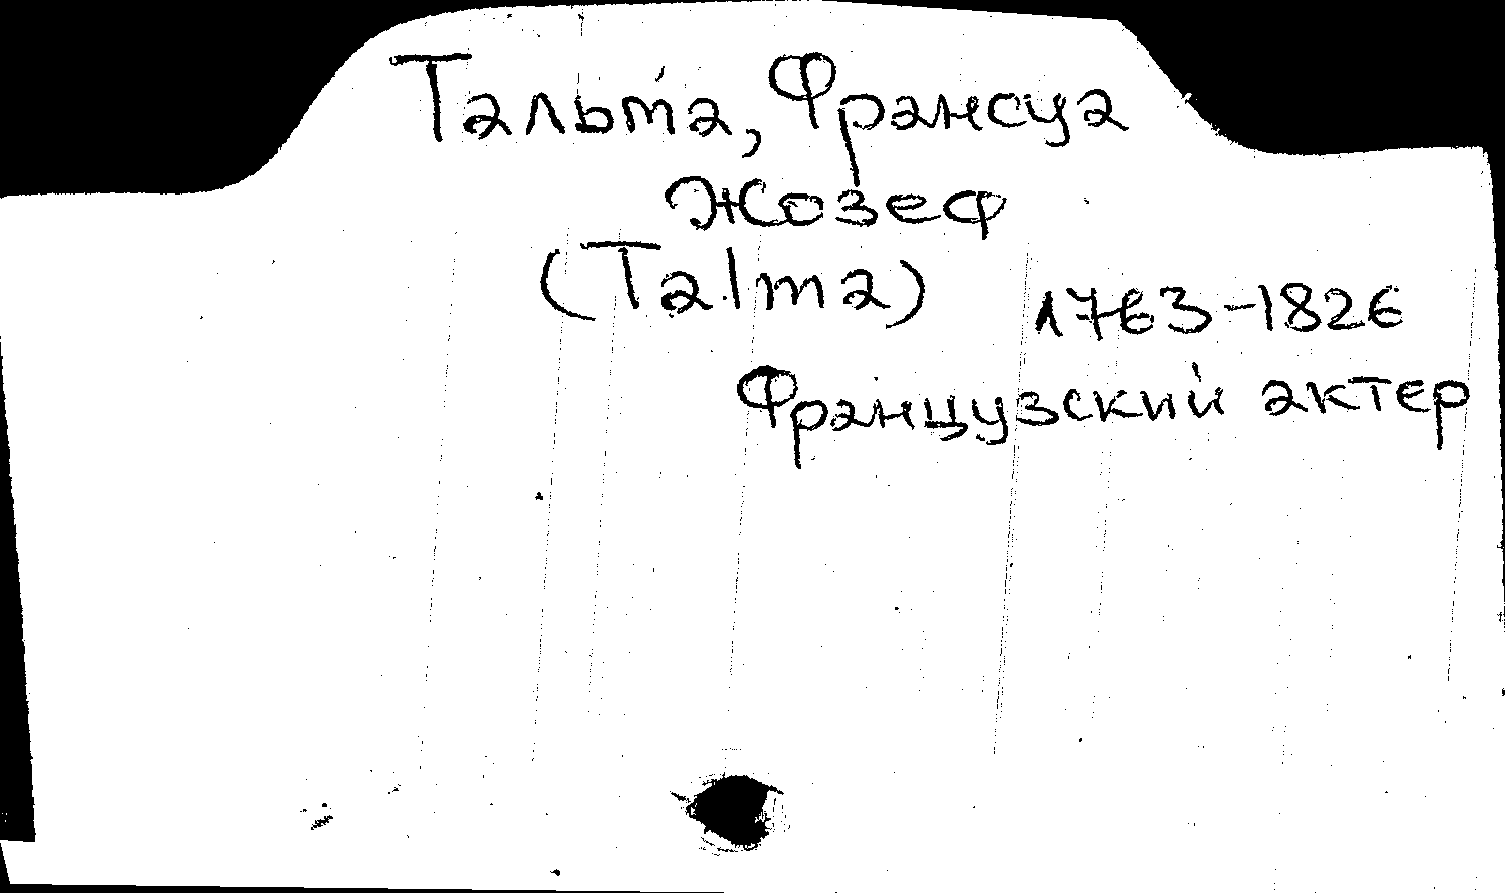 Тальма́, Франсуа
Жозеф
(Talma)
1763-1826
Французский актер